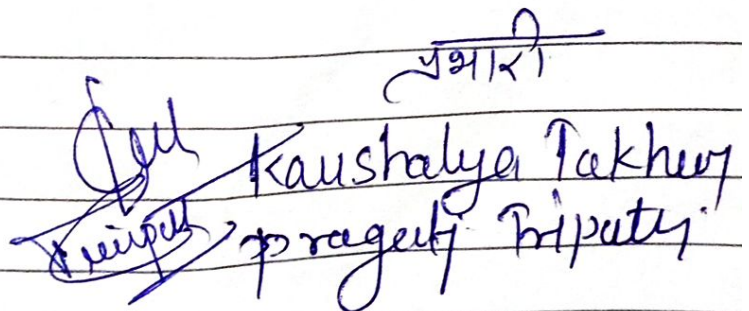 प्रभारी
Kaushalya Takhur
Pragati Tripathi